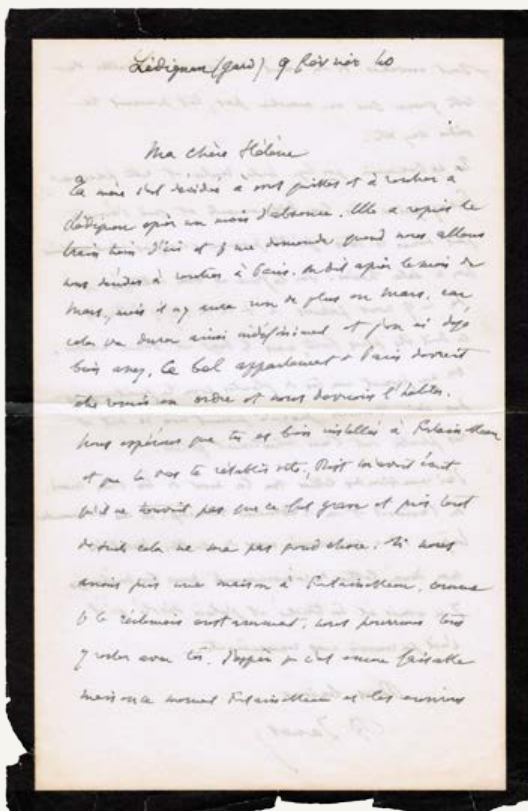 Lédignan (Gard) 9 février 40
Ma chère Hélène
Ta mère s'est décidée à vous quitter et à rentrer à
Lédignan après un mois d'absence. Elle a repris le
train d'ici et je me demande quand nous allons
nous décider à rentrer à Paris. On dit après le mois de
Mars, mais il y aura rien de plus en Mars, car
cela va durer ainsi indéfiniment et j'en ai déjà
bien assez. Ce bel appartement à Paris devrait
être remis en ordre et nous devrions l'habiter.
Nous espérons que tu es bien installée à
et que tu vas te rétablir vite,
qu'il ne trouvait pas que ce fut grave et puis tout
de suite cela ne m'a pas chose. Si nous
avions pris une maison à comme
je le réclamais nous pourrions tous
y rester avec toi. J'espère que c'est encore faisable
et les environs